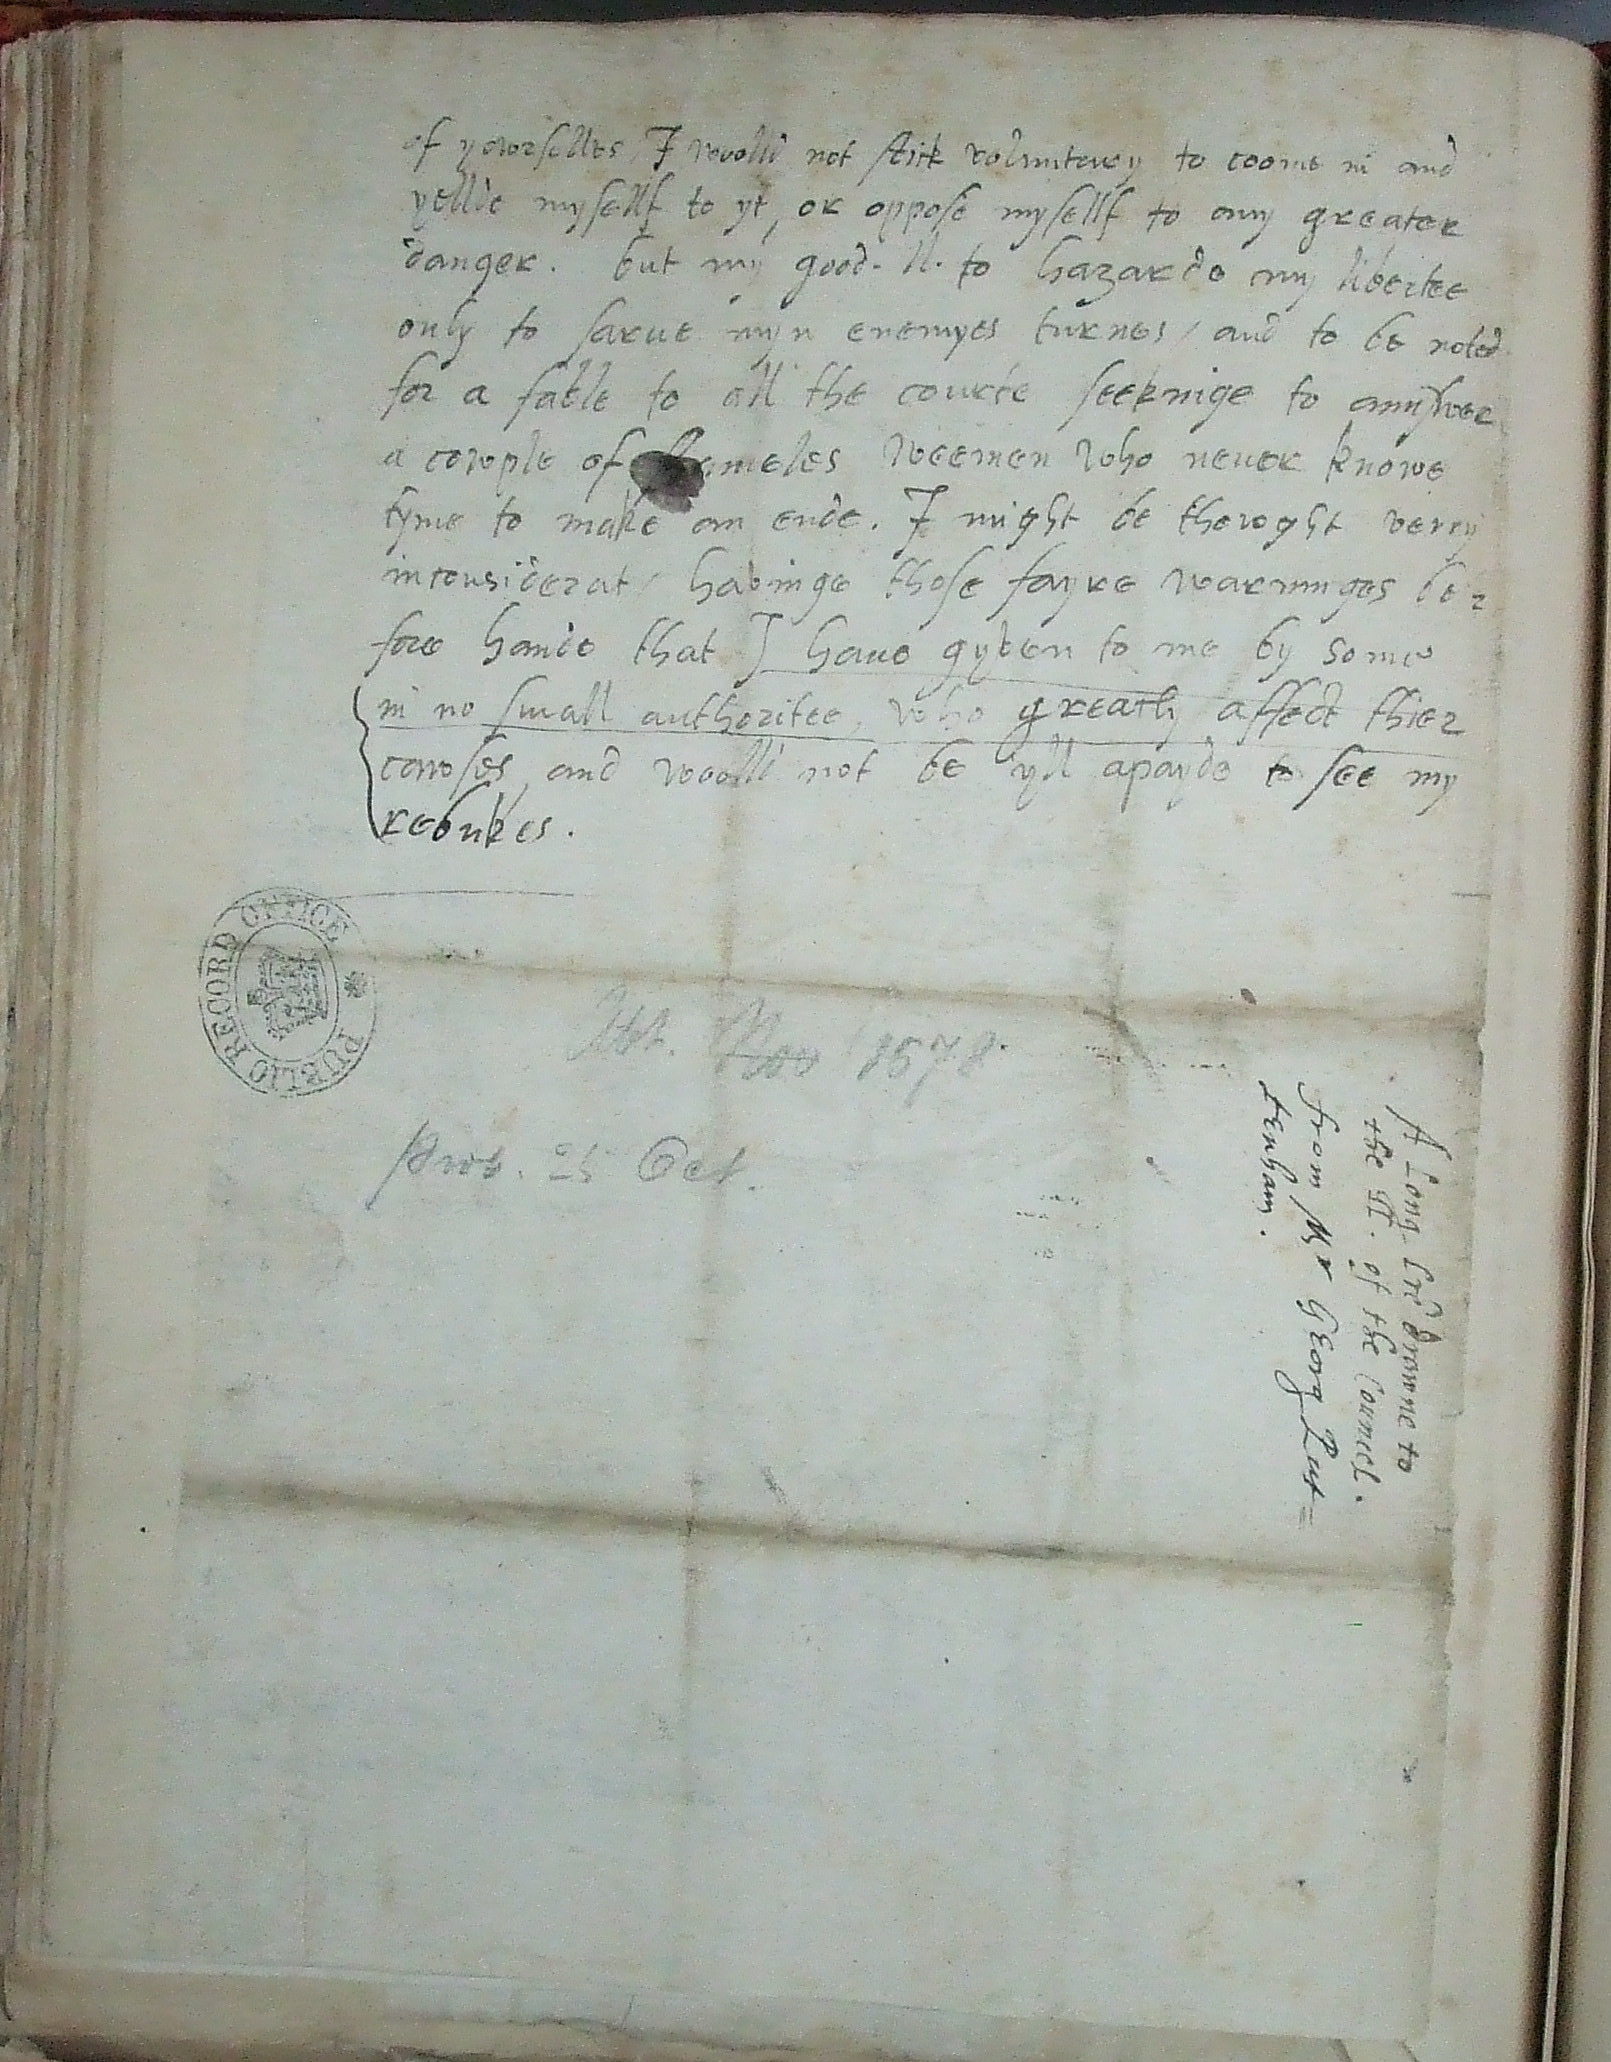 of yowrsellves, I woolld not stick voluntary to coome in and
yellde myself to yt, or oppose myself to any greater
danger. but my good. ll. to hazarde my libertee
only to sarve myn enemyes turnes / and to be noted
for a fable to all the courte seekinge to aunswer
a cowple of shameles weemen who never knowe
tyme to make an ende. I might be thowght verry
inconsiderat / havinge those fayre warninges be=
fore hande that I have gyven to me by some
in no small authoritee, who greatly affect thier
cawses, and woolld not be yll apayde to see my
rebukes.
PUBLIC RECORD OFFICE
1578.
Prob. 25 Oct.
A Long lre drawne to
the ll. of the Councel.
from Mr Georg Put=
tenham.